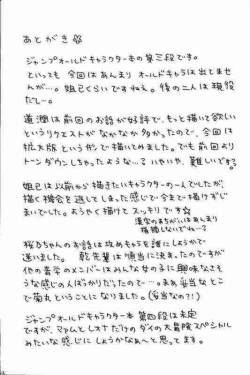 あとがき
ジャンプオールドキャラクター本の第三段です。
といっても 今回はあんまり オールドキャラは出てませ
んが…。妲己くらいですねえ。後の二人は現役
だしー。
蓮 は前回のお話が好評で、もっと描いて欲しい
というリクエストがなかなか多かったので、今回は
拡大版というカンジで描いてみました。でも前回より
トーンダウンしちゃったような…?いやいや、難しいですネ。
妲己は以前から描きたいキャラクターの一人でしたが、
描く機会を逃してしまった感じで今まで描けずじ
まいでした。ようやく描けて スッキリ です
漢字のまちがいはあんまり
指摘しないでねー?
桜乃ちゃんのお話は攻めキャラを誰にしようかで
迷いました。 乾先輩は順当に決まったのですが
他の青学のメンバーはみんな女の子に興味なさそ
うな感じの人ばっかりだしたので…。まあ妥当なとこ
で菊丸ということになりました。(妥当なの?!)
ジャンプオールドキャラクター本 第四段は未定
ですが、マァムとレオナだけのダイの大冒険スペシャル
みたいな感じにしようかなあ~と思ってます。